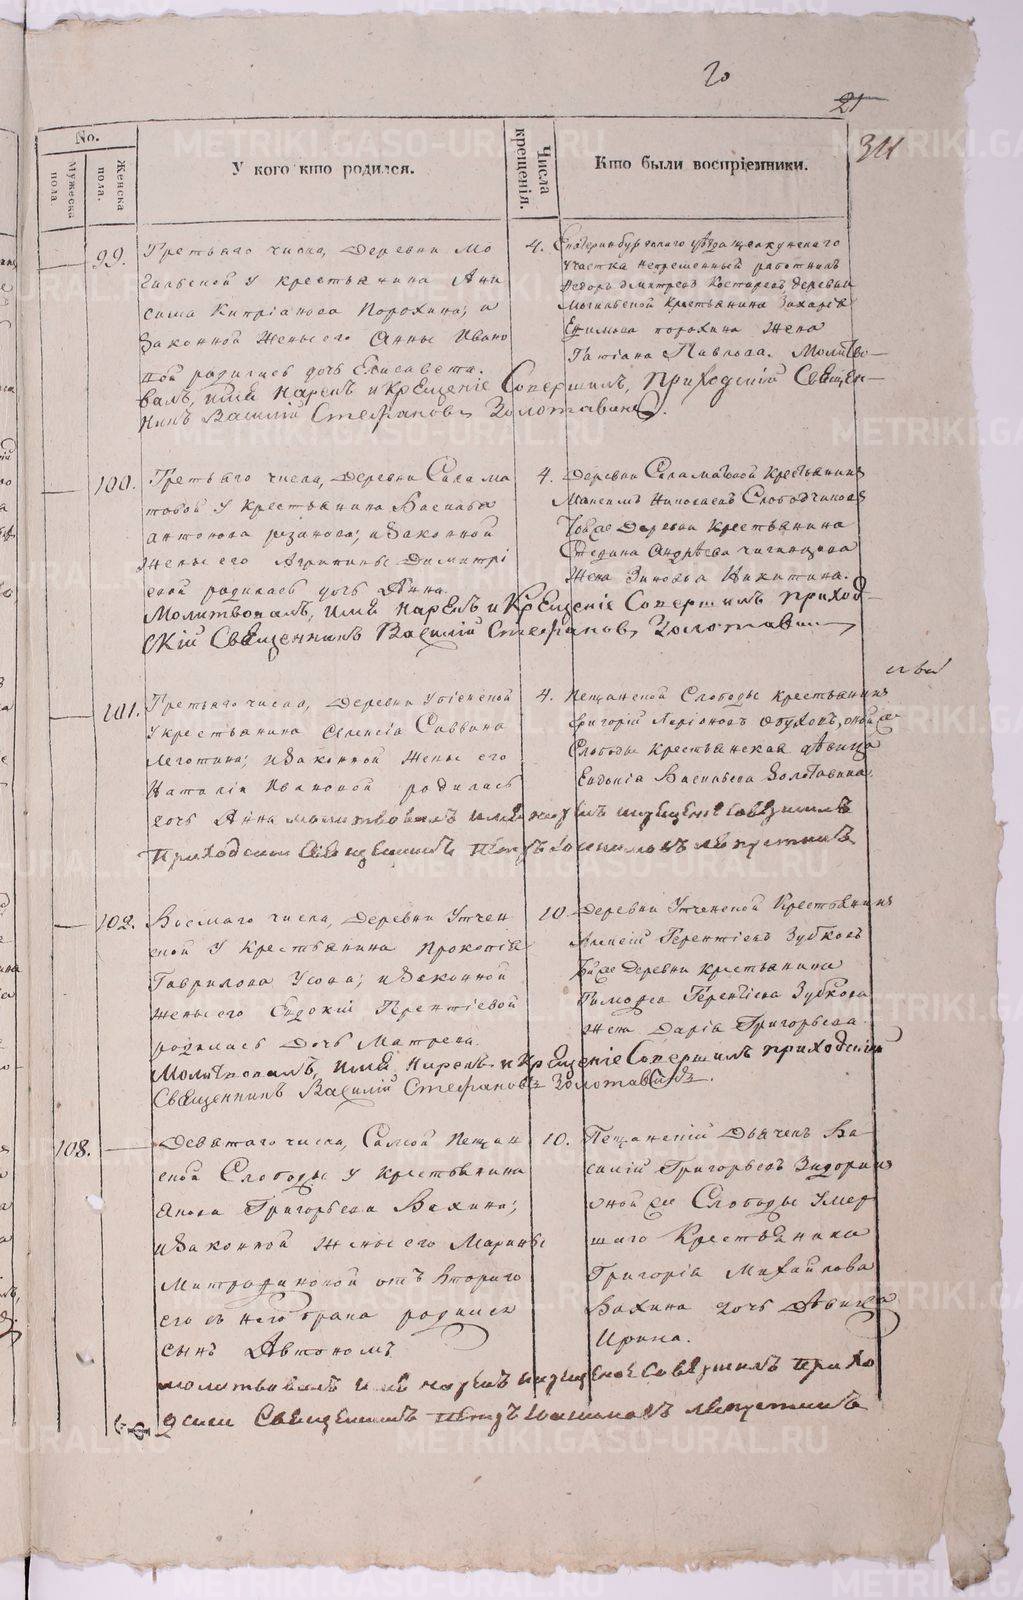 20
21
311
No.
Мужеска пола.
Женска пола.
У кого кто родился.
Числа крещенія.
Кто были воспріемники.
99.
Третьяго числа, Деревни Мо
гильской у крестьянина Ани
сима Кипріанова Порохина; и
Законной жены его Анны Ивано
вой родилась дочь Елисавета.
4.
Екатеринбургскаго уѣзда
участка непременный работникъ
Федоръ Дмитріевъ Деревни
Могильской Крестьянина Захарія
Ефимова Порохина Жена
Татіана Павлова. Молитво-
валъ, имя нарекъ и Крещеніе Совершилъ, приходскій Священ-
никъ Василій Стефановъ Золотавинъ.
100.
Третьяго числа, Деревни Салама
товой у Крестьянина Василья
Антонова Рязанова; и Законной
Жены его Агрипины Димитрі
евой родилась дочь Анна.
4.
Деревни Саламатовой Крестьянинъ
Максимъ Николаевъ Слободчиковъ
Той же Деревни Крестьянина
Андрѣева
Жена Зиновья Никитина.
Молитвовалъ, Имя нарекъ и Крещеніе Совершилъ приход-
скій Священникъ Василій Стефановъ Золотавинъ
101.
Третьяго числа, Деревни
у крестьянина Алексія Саввина
Леготина; и Законной Жены его
Наталіи Ивановой родилась
дочь Анна молитвовалъ имя нарекъ и крещеніе совершилъ
Приходскій Священникъ Петръ
4.
Пещанской Слободы крестьянинъ
Григорій Ларіоновъ Обуховъ, оной же
Слободы крестьянская дѣвица
Евдокія Васильева Золотавина.
102.
Восмаго числа, Деревни Утчен
ской у Крестьянина Прокопія
Гаврилова Усова; и Законной
жены его Евдокіи Терентіевой
родилась Дочь Матрена.
10.
Деревни Утченской Крестьянинъ
Алексій Терентіевъ Зубковъ
Той же Деревни крестьянина
Тимофея Терентіева Зубкова
жена Дарія Григорьева.
Молитвовалъ, имя нарекъ и Крещеніе Совершилъ приходскій
Священникъ Василій Стефановъ Золотавинъ.
108.
Девятаго числа, Самой Пещан
ской Слободы у крестьянина
Якова Григорьева Вахина;
и Законной жены его Марины
Митрофановой отъ втораго
его съ него брака родился
сынъ Автономъ
10.
Пещанскій Дьячекъ Ва
силій Григорьевъ
оной же Слободы умер
шаго Крестьянина
Григорія Михайлова
Вахина дочь Дѣвица
Ирина.
молитвовалъ имя нарекъ и крещеніе совершилъ прихо
дскій Священникъ Петръ
METRIKI.GASO-URAL.RU